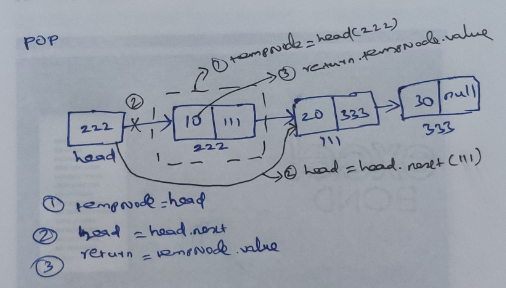 POP
① tempNode = head(222)
③ return.tempNode.value
②
222
head
10 111
222
20 333
111
30 null
333
② head = head.next (111)
① tempNode = head
② head = head.next
③ return = tempNode.value